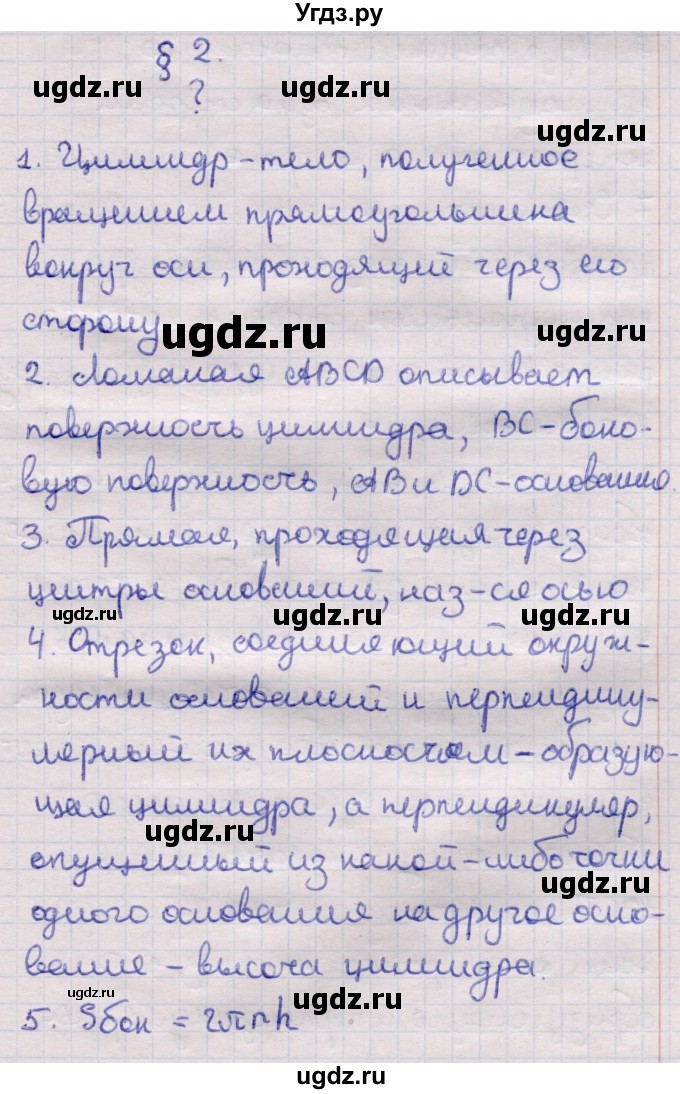 Угдз.ру
§ 2.
ugdz.ru ? ugdz.ru
ugdz.ru
1. Цилиндр - тело, полученное
вращением прямоугольника
вокруг оси, проходящий через его
сторону
ugdz.ru ugdz.ru
2. Ломаная ABCD описывает
поверхность цилиндра, BC - боко-
вую поверхность, AB и DC - основание.
3. Прямая, проходящая через
центры оснований, наз-ся осью
ugdz.ru ugdz.ru ugdz.ru
4. Отрезок, соединяющий окруж-
ности оснований и перпендику-
лярный их плоскостям - образую-
щая цилиндра, а перпендикуляр,
ugdz.ru
опущенный из какой-либо точки
ugdz.ru
одного основания на другое осно-
вание - высота цилиндра.
ugdz.ru ugdz.ru
5. Sбок = 2πrh
ugdz.ru